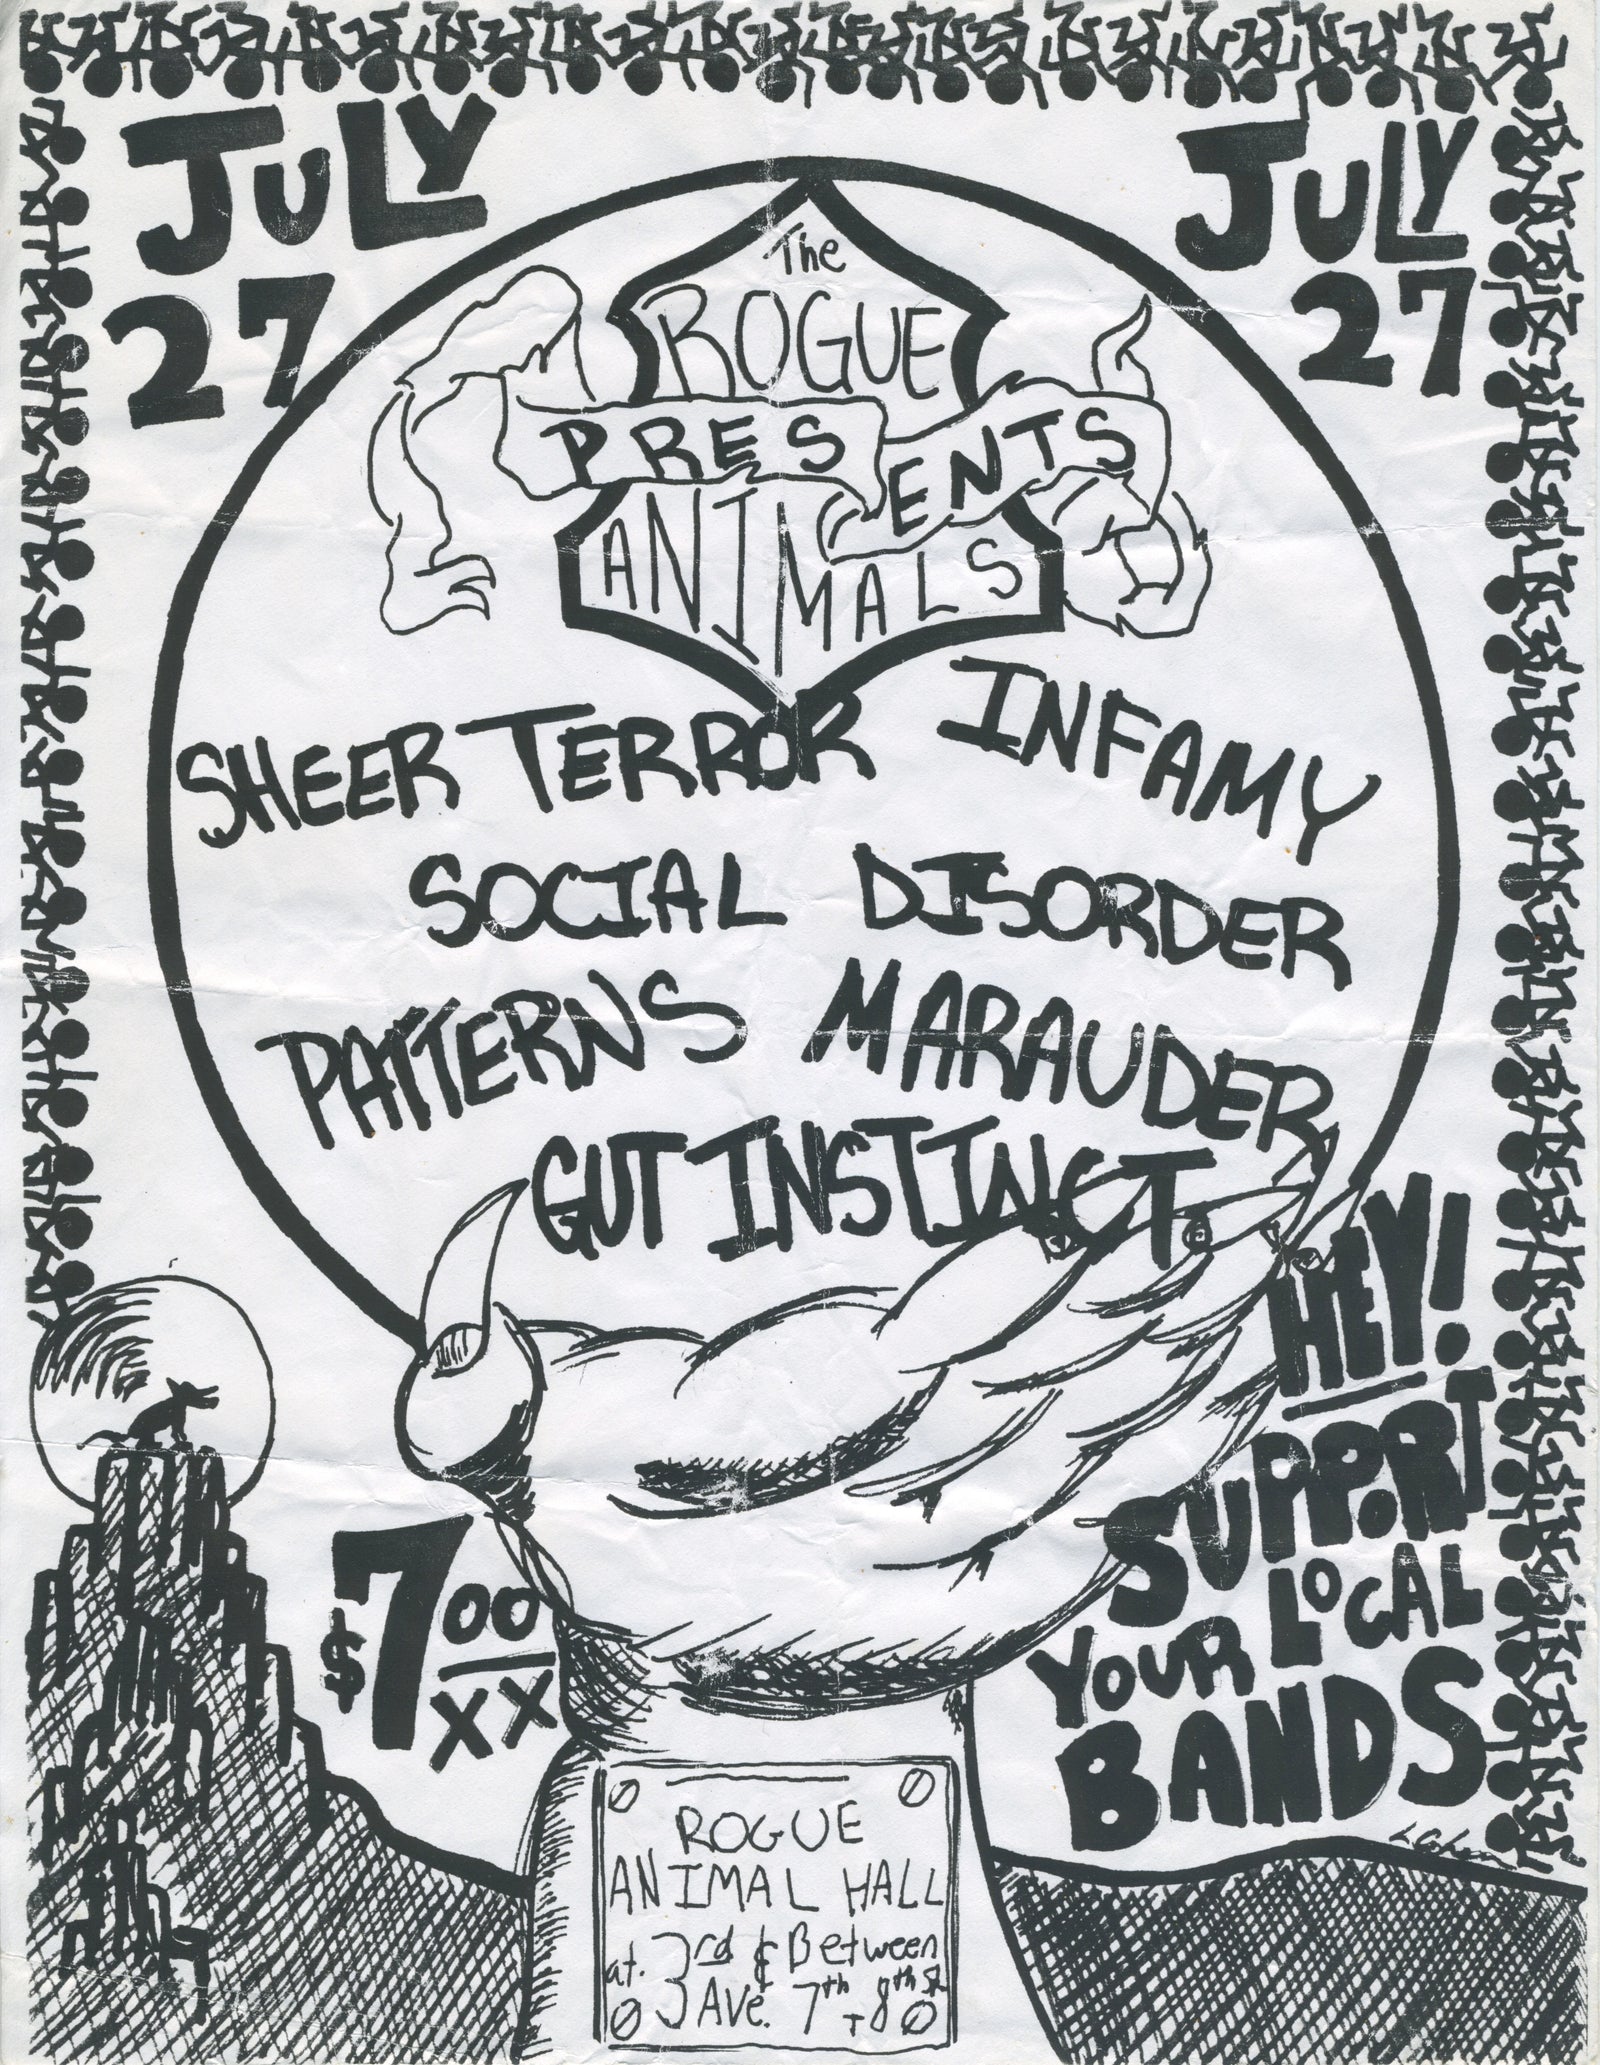 JULY
27
JULY
27
The
ROGUE
PRESENTS
ANIMALS
SHEER TERROR INFAMY
SOCIAL DISORDER
PATTERNS MARAUDER
GUT INSTINCT
HEY!
SUPPORT
YOUR LOCAL
BANDS
$7 00
XX
ROGUE
ANIMAL HALL
at. 3rd & Between
3 Ave. 7th + 8th St